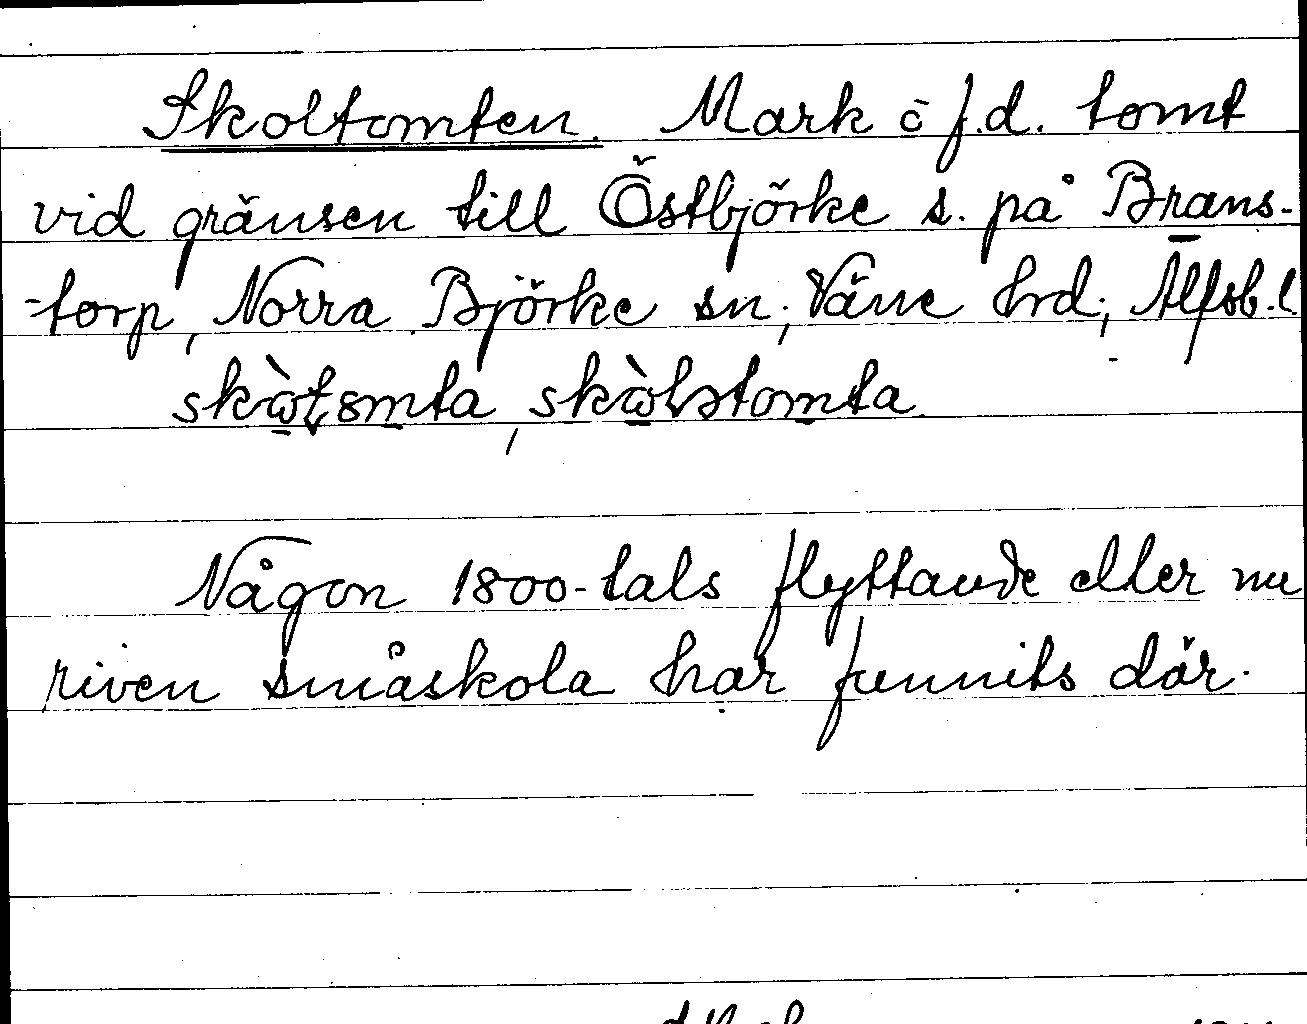 Skoltomten. Mark o f.d. tomt
vid gränsen till Östbjörke s. på Brans-
-torp, Norra Björke sn, Väne hrd, Älfsb. l.
skòlstomta
Någon 1800-tals flyttande eller nu
riven småskola har funnits där.